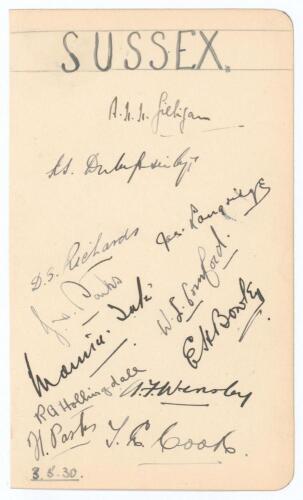 SUSSEX.
A.H.H. Gilligan
K.S. Duleepsinhji
Jas. Langridge
D.S. Richards
J.H. Parks
W.L. Cornford.
E H Bowley
Maurice Tate
R G Hollingdale
A.F. Wensley
H. Parks
T. E. Cook.
3.5.30.